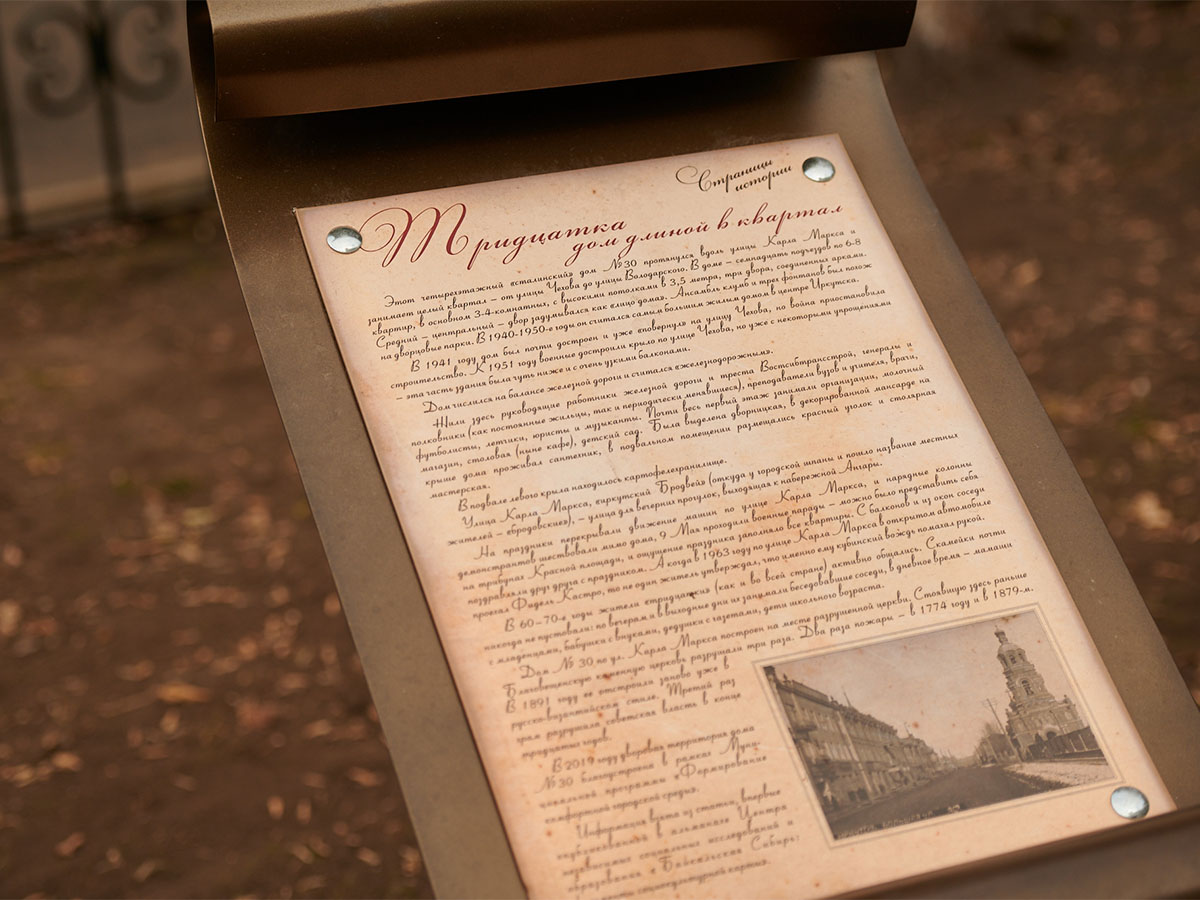 Страницы
истории
Тридцатка
дом длиной в квартал
Этот четырехэтажный «сталинский» дом №30 протянулся вдоль улицы Карла Маркса и
занимает целый квартал – от улицы Чехова до улицы Володарского. В доме – семнадцать подъездов по 6-8
квартир, в основном 3-4-комнатных, с высокими потолками в 3,5 метра, три двора, соединенных арками.
Средний – центральный – двор задумывался как «лицо дома». Ансамбль клумб и трех фонтанов был похож
на дворцовые парки. В 1940-1950-е годы он считался самым большим жилым домом в центре Иркутска.
В 1941 году дом был почти достроен и уже «повернул» на улицу Чехова, но война приостановила
строительство. К 1951 году военные достроили крыло по улице Чехова, но уже с некоторыми упрощениями
– эта часть здания была чуть ниже и с очень узкими балконами.
Дом числился на балансе железной дороги и считался «железнодорожным».
Жили здесь руководящие работники железной дороги и треста Востсибтрансстрой, генералы и
полковники (как постоянные жильцы, так и периодически менявшиеся), преподаватели вузов и учителя, врачи,
футболисты, летчики, юристы и музыканты. Почти весь первый этаж занимали организации, молочный
магазин, столовая (ныне кафе), детский сад. Была выделена дворницкая, в декорированной мансарде на
крыше дома проживал сантехник, в подвальном помещении размещались красный уголок и столярная
мастерская.
В подвале левого крыла находилось картофелехранилище.
Улица Карла Маркса, «иркутский Бродвей» (откуда у городской шпаны и пошло название местных
жителей – «бродовские»), – улица для вечерних прогулок, выходящая к набережной Ангары.
На праздники перекрывали движение машин по улице Карла Маркса, и нарядные колонны
демонстрантов шествовали мимо дома, 9 Мая проходили военные парады – можно было представить себя
на трибунах Красной площади, и ощущение праздника заполняло все квартиры. С балконов и из окон соседи
поздравляли друг друга с праздником. А когда в 1963 году по улице Карла Маркса в открытом автомобиле
проехал Фидель Кастро, то не один житель утверждал, что именно ему кубинский вождь помахал рукой.
В 60–70-е годы жители «тридцатки» (как и во всей стране) активно общались. Скамейки почти
никогда не пустовали: по вечерам и в выходные дни их занимали беседовавшие соседи, в дневное время – мамаши
с младенцами, бабушки с внуками, дедушки с газетами, дети школьного возраста.
Дом № 30 по ул. Карла Маркса построен на месте разрушенной церкви. Стоявшую здесь раньше
Благовещенскую каменную церковь разрушали три раза. Два раза пожары – в 1774 году и в 1879-м.
В 1891 году ее отстроили заново уже в
русско-византийском стиле. Третий раз
храм разрушила советская власть в конце
тридцатых годов.
В 2019 году дворовая территория дома
№30 благоустроена в рамках Муни-
ципальной программы «Формирование
комфортной городской среды».
Информация взята из статьи, впервые
опубликованной в альманахе Центра
независимых социальных исследований и
образования «Байкальская Сибирь:
социокультурной карты».